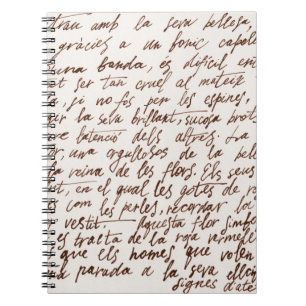 trau amb la seva bellesa
gràcies a un fonic capoll
una banda, és difícil cri
t ser tan cruel al mateix
s, si no fos per les espines,
per la seva brillant, sucosa brot
l'atenció dels altres. La
r, una orgulloses de la bell
la reina de les flors. Els seus
t, en el qual les gotes de r
s com les perles, recordar lo
vestit. Aquesta flor simb
es tracta de la roja vermell
que els homes que volen
na parada a la seva ellci
signes d'ate